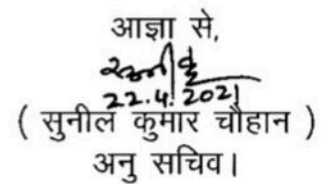 आज्ञा से,
22.4.2021
( सुनील कुमार चौहान )
अनु सचिव।